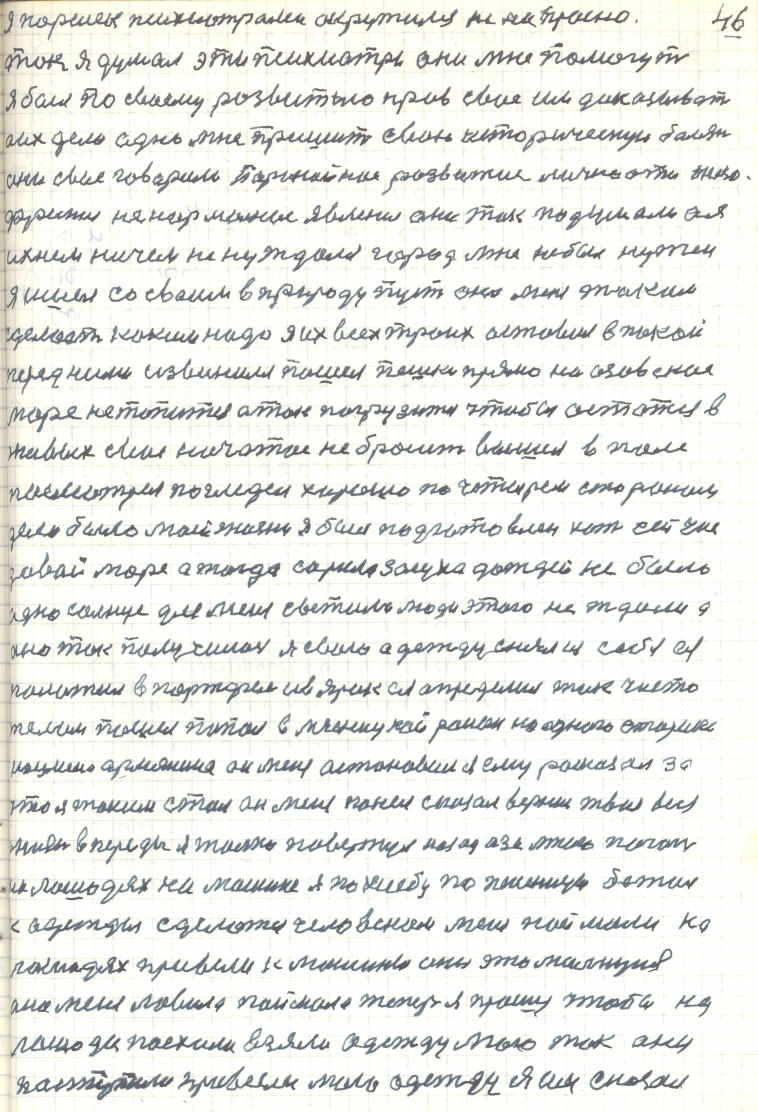 я порселы психиатрами окружился не напрасно. 46
так я думал эти психиатры они мне помогут
я был по своему розвитью прав свое им доказыват
а их дело одно мне пришит свою историческую болезн
они свое говорили Паронойное розвитие личности
не нармолная явления они так подумали а я
ихнем ничем не нуждался город мне небыл нужен
я шшел со своим в природу пуст они меня таким
сделоют каким надо я их всех троих оставил в покои
перед ними извинился пошел пешки прямо на азовское
море не топится а так погрузится чтобы остатся в
живых свое начатое не бросит вышел в поле
посмотрел погледел хорошо по четырем сторонам
дело было моей жизни я был подготовлен хот сейчас
давай море а тогда засуха дождей не было
одно солнце для меня светила люди этого не ждали а
оно так получилос я свою одежду снял из себя ея
положил в портфель определил так чисто
телом пошел попал в район на одного старика
нацыю армянина он меня астоновил я ему росказал за
что я таким стал он меня понел сказал верни твоя вся
жизн в переды я только повернул назад а за мною погон
на лошодях на машине я по хлебу по пшеницы бежал
к одежды сделатся человеком меня поймали на
лошадях привели к машины она это
она меня ловила поймала теперь я прошу чтобы на
лошоди поехали взяли одежду мою так они
привезли мою одежду я им сказал